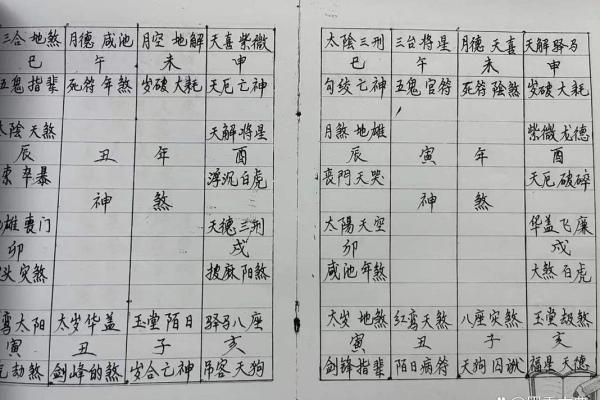 三合 地煞 月德 咸池 月空 地解 天喜 紫微
巳 午 未 申
五鬼 指輩 死符 年煞 岁破 大耗 天厄 亡神
太陰 天煞 天解 将星
辰 丑 年 酉
索 卒暴 浮沉 白虎
神 煞
雄 丧门 天德 三刑
卯 戌
头 灾煞 披麻 阳煞
鸾 太阳 太岁 华盖 玉堂 陌日 驿马 八座
寅 丑 子 亥
劫煞 剑峰 的煞 岁合 亡神 吊客 天狗
太陰 三刑 三台 将星 月德 天喜 天解 驿马
巳 午 未 申
勾绞 亡神 五鬼 官符 死符 陰煞 岁破 大耗
月煞 地雄 紫微 龙德
辰 寅 年 酉
丧門 天哭 天厄 破碎
神 煞
太陽 天空 华盖 飞廉
卯 戌
咸池 年煞 大煞 白虎
太岁 地煞 红鸾 天煞 八座 灾煞 玉堂 劫煞
寅 丑 子 亥
剑锋 指輩 陌日 病符 天狗 囚狱 福星 天德